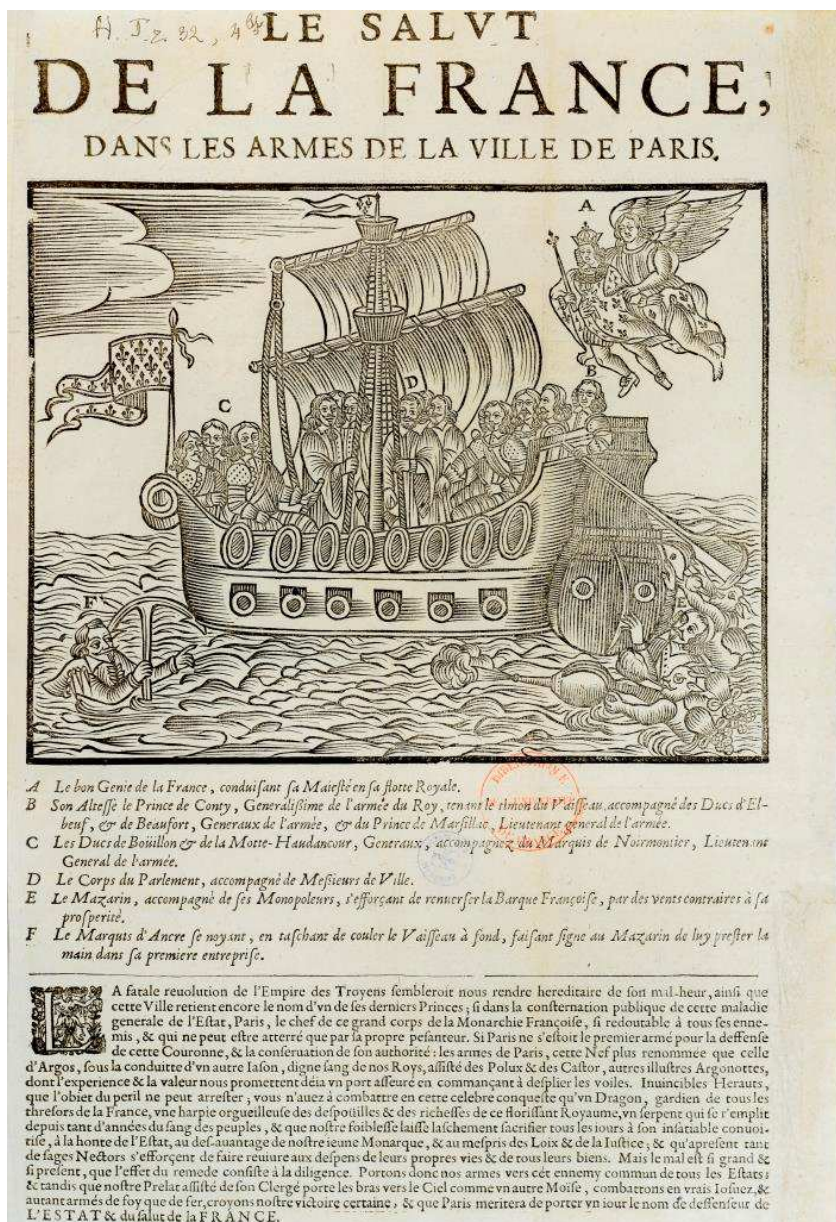 H. J. z. 32, 4
LE SALVT
DE LA FRANCE,
DANS LES ARMES DE LA VILLE DE PARIS.
A
B
D
C
F
A Le bon Genie de la France, conduisant sa Maiesté en sa flotte Royale.
B Son Altesse le Prince de Conty, Generalissime de l'armée du Roy, tenant le timon du Vaisseau, accompagné des Ducs d'El-
beuf, & de Beaufort, Generaux de l'armée, & du Prince de Marsillac, Lieutenant general de l'armée.
C Les Ducs de Boüillon & de la Motte-Haudancour, Generaux, accompagnez du Marquis de Noirmontier, Lieutenant
General de l'armée.
D Le Corps du Parlement, accompagné de Messieurs de Ville.
E Le Mazarin, accompagné de ses Monopoleurs, s'efforçant de renuerser la Barque Françoise, par des vents contraires à sa
prosperité.
F Le Marquis d'Ancre se noyant, en taschant de couler le Vaisseau à fond, faisant signe au Mazarin de luy prester la
main dans sa premiere entreprise.
LA fatale reuolution de l'Empire des Troyens sembleroit nous rendre hereditaire de son mal-heur, ainsi que
cette Ville retient encore le nom d'vn de ses derniers Princes; si dans la consternation publique de cette maladie
generale de l'Estat, Paris, le chef de ce grand corps de la Monarchie Françoise, si redoutable à tous ses enne-
mis, & qui ne peut estre atterré que par sa propre pesanteur. Si Paris ne s'estoit le premier armé pour la deffense
de cette Couronne, & la conseruation de son authorité: les armes de Paris, cette Nef plus renommée que celle
d'Argos, sous la conduitte d'vn autre Iason, digne sang de nos Roys, assisté des Polux & des Castor, autres illustres Argonottes,
dont l'experience & la valeur nous promettent déia vn port asseuré en commançant à desplier les voiles. Inuincibles Herauts,
que l'obiet du peril ne peut arrester, vous n'auez à combattre en cette celebre conqueste qu'vn Dragon, gardien de tous les
thresors de la France, vne harpie orgueilleuse des despoüilles & des richesses de ce florissant Royaume, vn serpent qui se remplit
depuis tant d'années du sang des peuples, & que nostre foiblesse laisse laschement sacrifier tous les iours à son insatiable conuoi-
tise, à la honte de l'Estat, au des-auantage de nostre ieune Monarque, & au mespris des Loix & de la Iustice, & qu'apresent tant
de sages Nectors s'efforcent de faire reuiure aux despens de leurs propres vies & de tous leurs biens. Mais le mal est si grand &
si present, que l'effet du remede consiste à la diligence. Portons donc nos armes vers cét ennemy commun de tous les Estats;
& tandis que nostre Prelat assisté de son Clergé porte les bras vers le Ciel comme vn autre Moïse, combattons en vrais Iosuez, &
autant armés de foy que de fer, croyons nostre victoire certaine, & que Paris meritera de porter vn iour le nom de deffenseur de
L'ESTAT & du salut de la FRANCE.